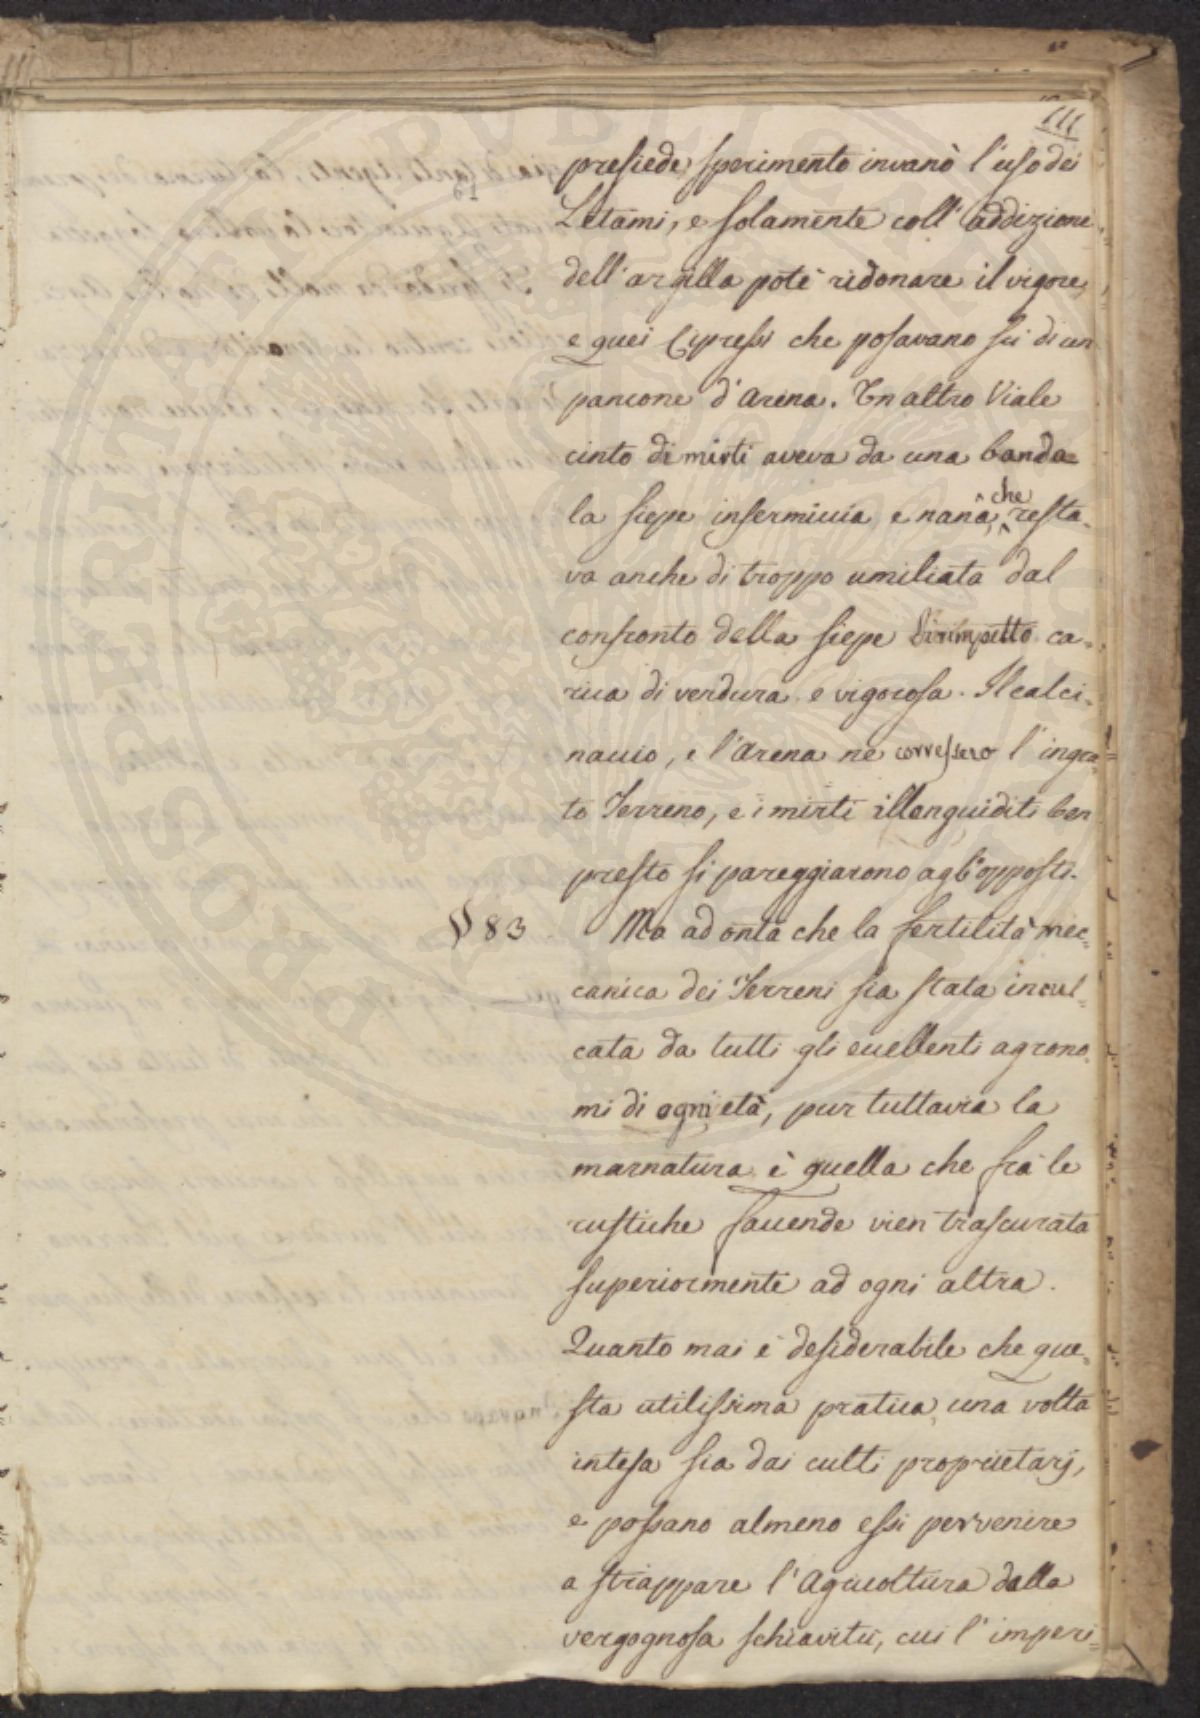 111
presiede, sperimentò invanò l'uso dei
Letami, e solamente coll'addizione
dell'argilla potè ridonare il vigore,
e quei Cipressi che posavano su di un
pancone d'arena. In altro Viale
cinto di mirti aveva da una banda
la siepe infermiccia e nana, che resta-
va anche di troppo umiliata dal
confronto della siepe dirimpetto ca-
rica di verdura e vigorosa. Il calci-
naccio, e l'arena ne corressero l'ingra=
to Terreno, e i mirti illanguiditi ben
presto si pareggiarono agl'opposti.
§ 83 Ma ad onta che la fertilità mec=
canica dei Terreni sia stata incul=
cata da tutti gli eccellenti agrono-
mi di ogni età, pur tuttavia la
marnatura è quella che frà le
rustiche faccende vien trascurata
superiormente ad ogni altra.
Quanto mai è desiderabile che que-
sta utilissima pratica, una volta
intesa sia dai culti proprietarj,
e possano almeno essi pervenire
a strappare l'Agricoltura dalla
vergognosa schiavitù, cui l'imperi=
PROSPERITATI PUBLICAE